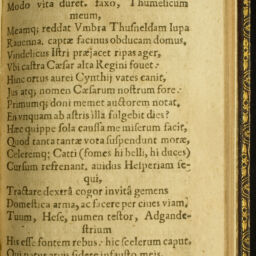 Modo vita duret. faxo, Thumelicum
meum,
Meamq; reddat Vmbra Thusneldam lupa
Rauenna. captæ facinus obducam domus,
Vindelicus Istri præjacet ripas ager,
Vbi castra Cæsar alta Regini fouet:
Hinc ortus aurei Cynthij vates canit,
Jus atq; nomen Cæsarum nostrum fore.
Primumq; doni memet auctorem notat,
En vnquam ab astris illa fulgebit dies?
Hæc quippe sola caussa me miserum facit,
Quod tanta tantæ vota suspendunt moræ,
Celeremq; Catti (fomes hi belli, hi duces)
Cursum refrenant, auidos Hesperiam se-
qui,
Tractare dexterâ cogor invitâ gemens
Domestica arma, ac facere per ciues viam,
Tuum, Hese, numen testor, Adgande-
strium
His esse fontem rebus: hic scelerum caput.
Qui natus arvis sidere infausto meis